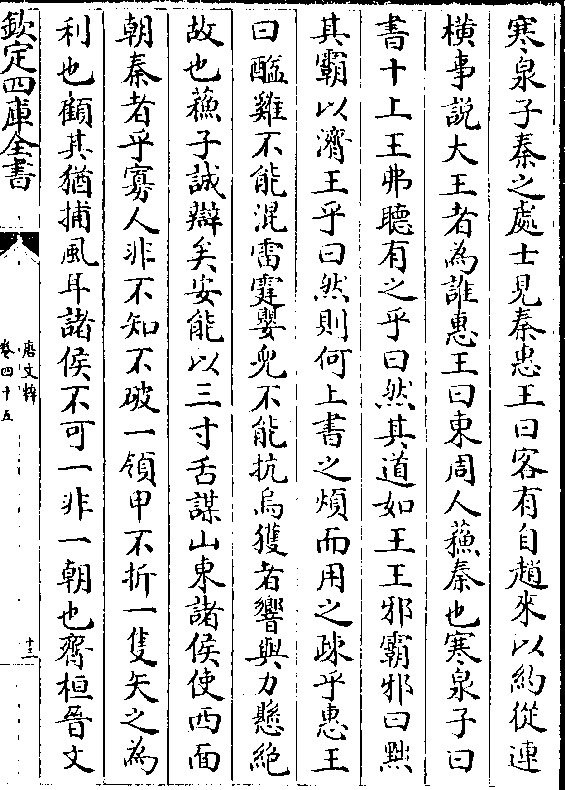 寒泉子秦之處士見秦惠王曰客有自趙來以約從連
橫事説大王者為誰惠王曰東周人蘓秦也寒泉子曰
書十上王弗聽有之乎曰然其道如王王邪霸邪曰㸃
其霸以濟王乎曰然則何上書之煩而用之疎乎惠王
曰醯雞不能混雷霆嬰兒不能抗烏獲者響與力懸絶
故也蘓子誠辯矣安能以三寸舌謀山東諸侯使西面
朝秦者乎寡人非不知不破一領甲不折一隻矢之為
利也顧其猶捕風耳諸侯不可一非一朝也齊桓晉文
欽定四庫全書
唐文粹
卷四十五
十三